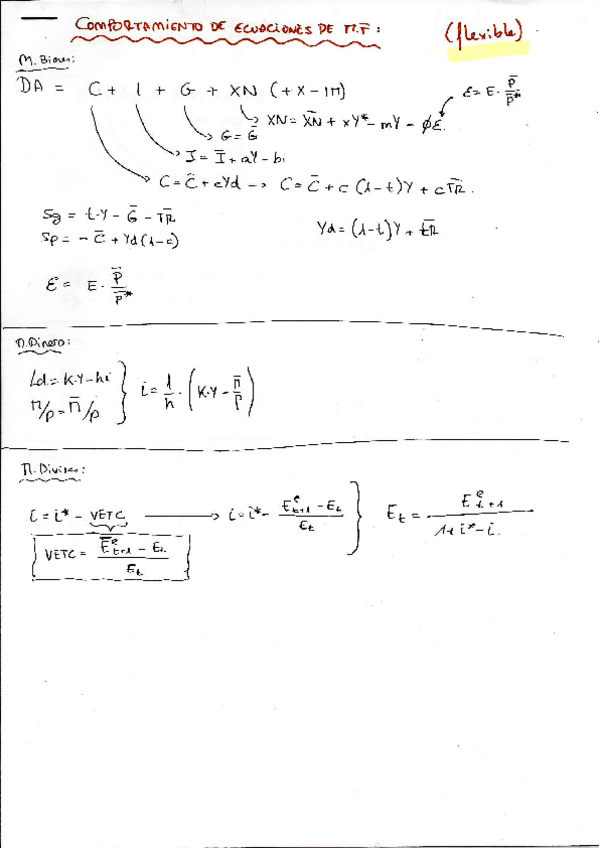 COMPORTAMIENTO DE ECUACIONES DE M.F: (flexible)
M. Bienes:
DA = C + I + G + XN (+X - IM)
ε = E · P̄/P̄*
XN = X̄N̄ + xY* - mY - φε.
G = Ḡ
I = Ī + aY - bi
C = C̄ + cYd → C = C̄ + c (1-t)Y + cT̄R̄.
Sg = t·Y - Ḡ - T̄R̄
Sp = - C̄ + Yd(1-c)
Yd = (1-t)Y + t̄R̄
ε = E · P̄/P̄*
M. Dinero:
Ld = K·Y - hi
M/P = M̄/P̄
i = 1/h · (K·Y - M̄/P̄)
M. Divisas:
i = i* - VETC → i = i* - (Eᵉt+1 - Et)/Et
Et = Eᵉt+1/(1+i*-i)
VETC = (Ēᵉt+1 - Et)/Et